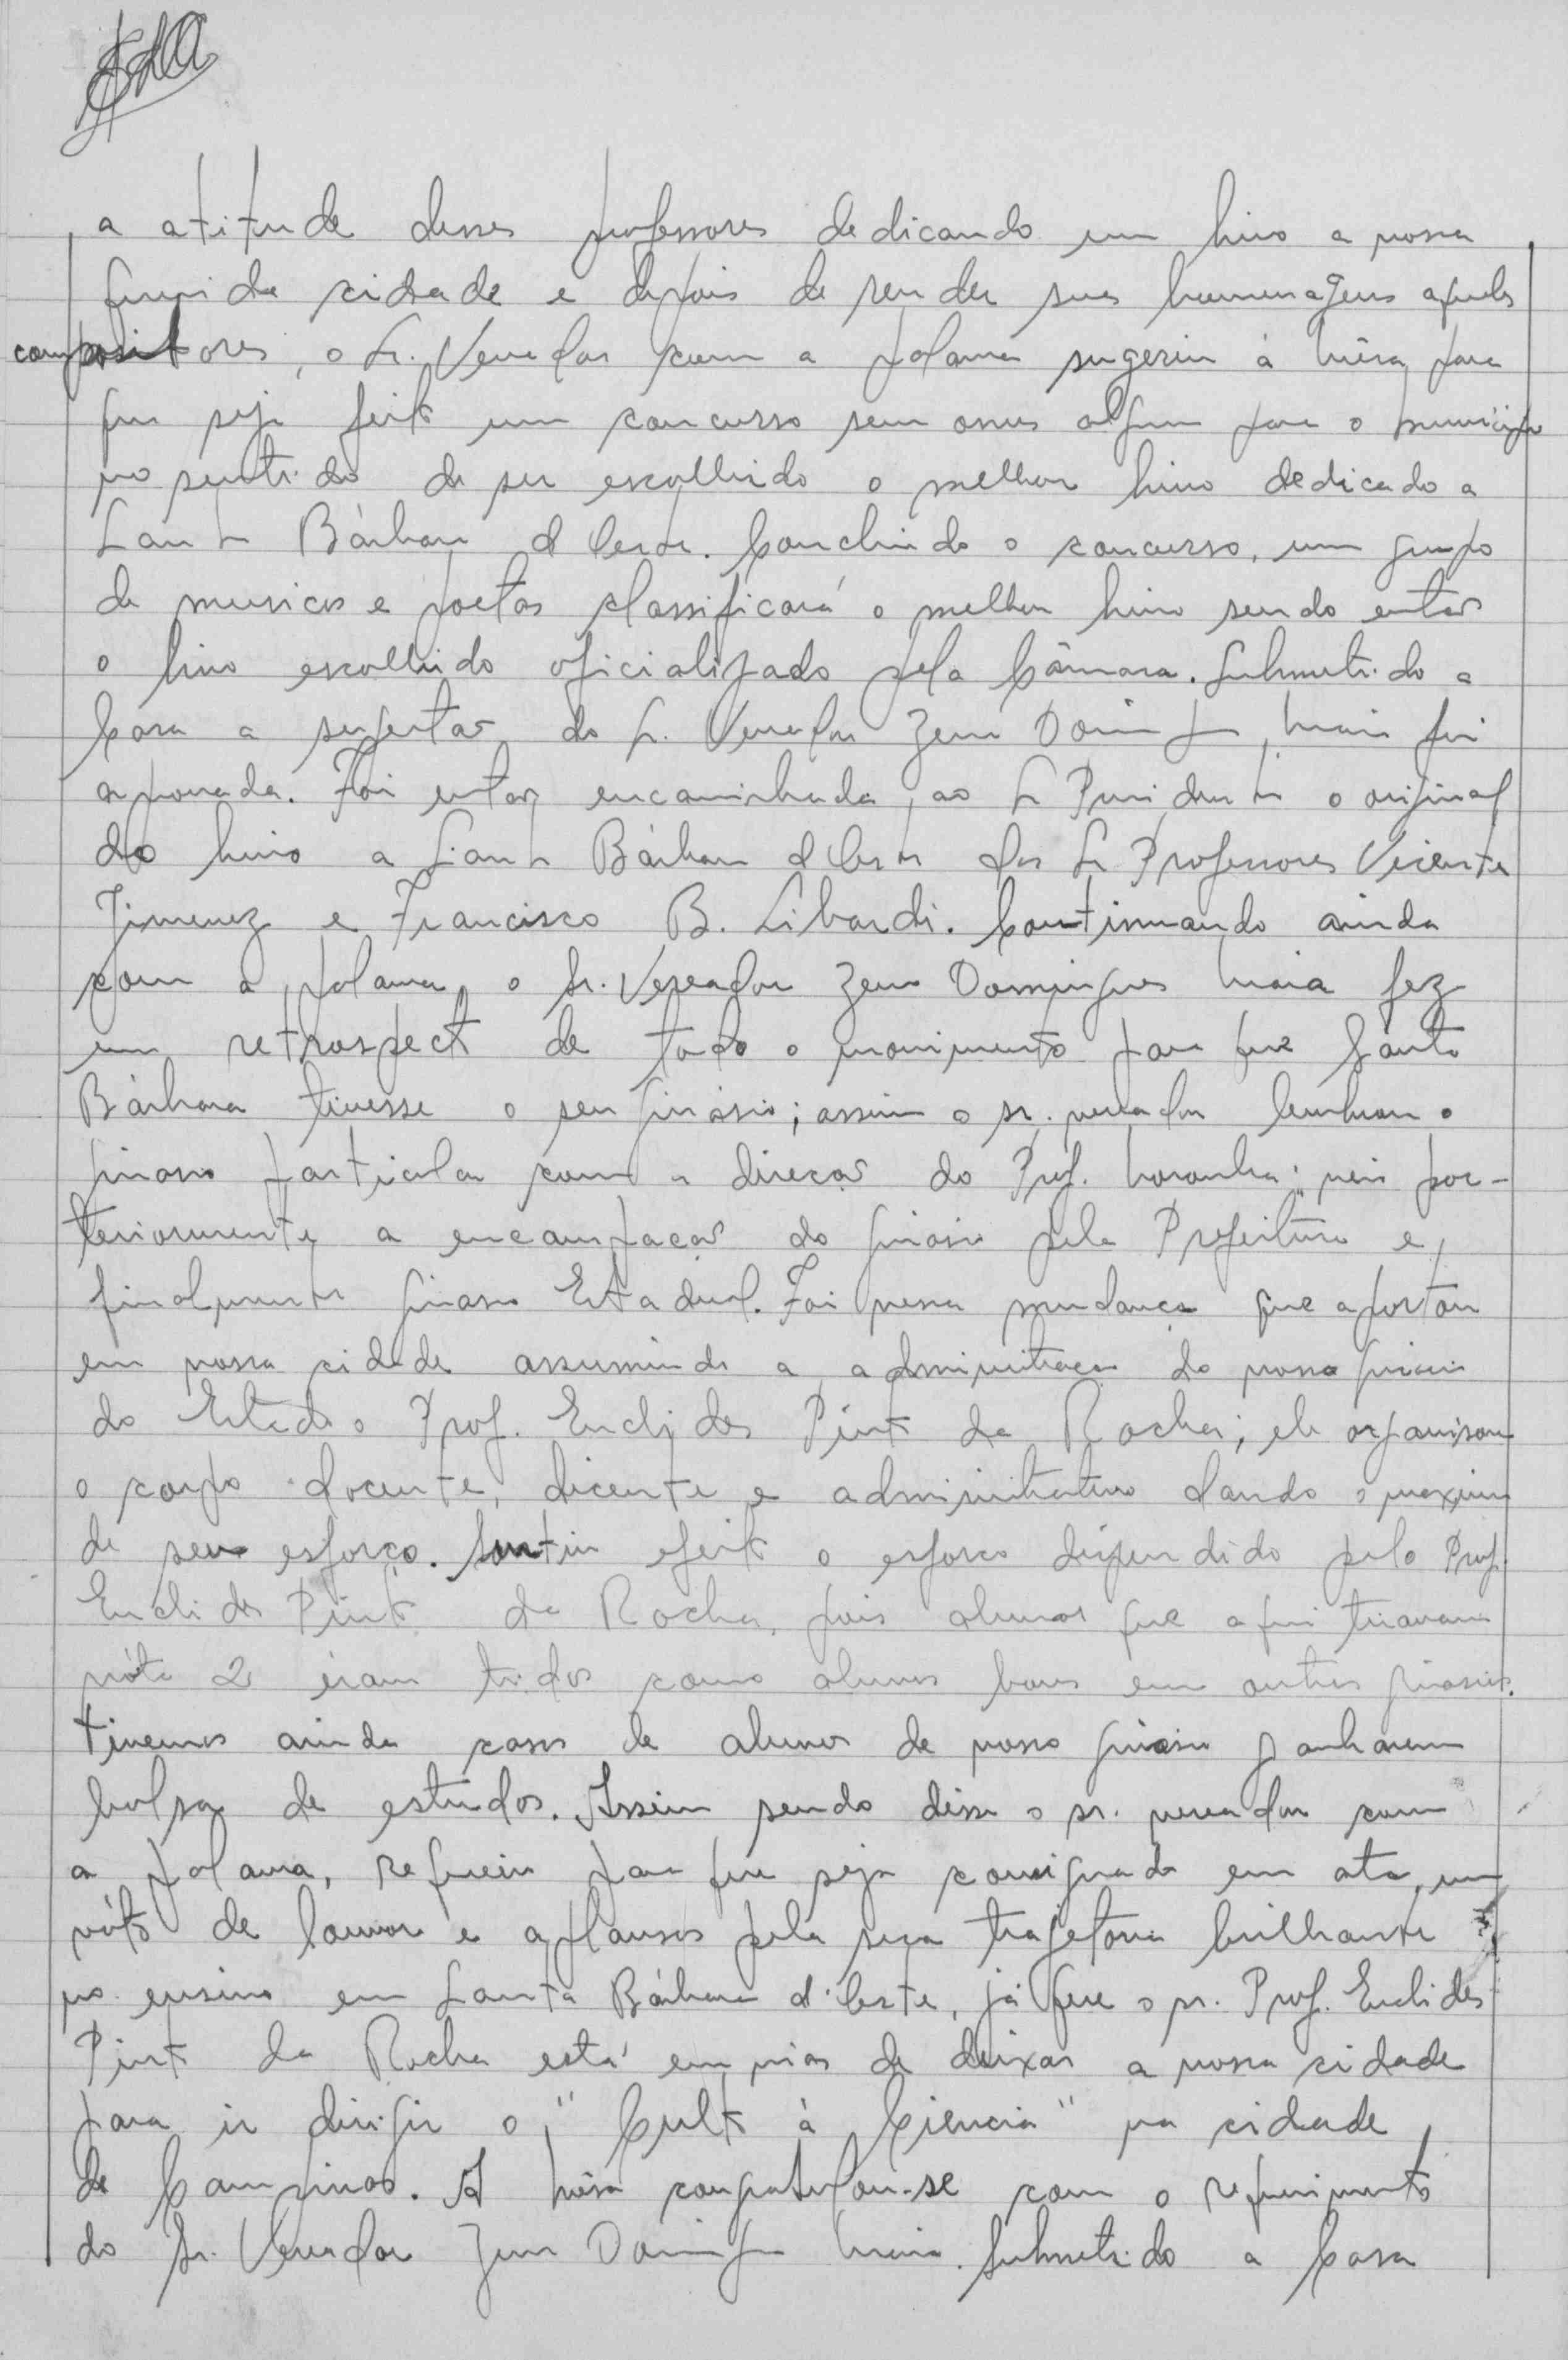 a atitude desses professores dedicando um hino a nossa
querida cidade e depois de render suas homenagens aqueles
compositores, o Sr. Vereador com a palavra sugeriu à mêsa para
que seja feito um concurso sem onus algum para o município
no sentido de ser escolhido o melhor hino dedicado a
Santa Bárbara d'Oeste. Concluindo o concurso, um grupo
de musicos e poetas classificará o melhor hino sendo entao
o hino escolhido oficializado pela Câmara. Submetido a
Casa a sugestao do Sr. Vereador Zeno Domingues Maia foi
aprovada. Foi entao encaminhada ao Sr Presidente o original
do hino a Santa Bárbara d'Oeste dos Sr Professores Vicente
Jimenez e Francisco B. Libardi. Continuando ainda
com a palavra, o Sr. Vereador Zeno Domingues Maia fez
um retrospecto de todo o movimento para que Santa
Bárbara tivesse o seu ginásio; assim o sr. vereador lembrou o
ginasio particular com a direcao do Prof. Noronha; veio pos-
teriormente a encampacao do ginasio pela Prefeitura e,
finalmente ginasio Estadual. Foi nessa mudanca que aportou
em nossa cidade assumindo a administracao do nosso ginasio
do Estado o Prof. Euclides Pinto da Rocha; ele organisou
o corpo docente, dicente e administrativo dando o maximo
de seu esforco. Surtiu efeito o esforco dispendido pelo Prof.
Euclides Pinto da Rocha, pois alunos que aqui tiravam
nóta 2 éram tidos como alunos bons em outros ginasios.
Tivemos ainda casos de alunos de nosso ginásio ganharem
bolsa de estudos. Assim sendo disse o sr. vereador com
a palavra, requeiro para que seja consignado em ata, um
vóto de louvor e aplausos pela sua trajetoria brilhante
no ensino em Santa Bárbara d'Oeste, já que o sr. Prof. Euclides
Pinto da Rocha está em vias de deixar a nossa cidade
para ir dirigir o "Culto à Ciencia" na cidade
de Campinas. A mêsa congratulou-se com o requerimento
do Sr. Vereador Zeno Domingues Maia. Submetido a Casa